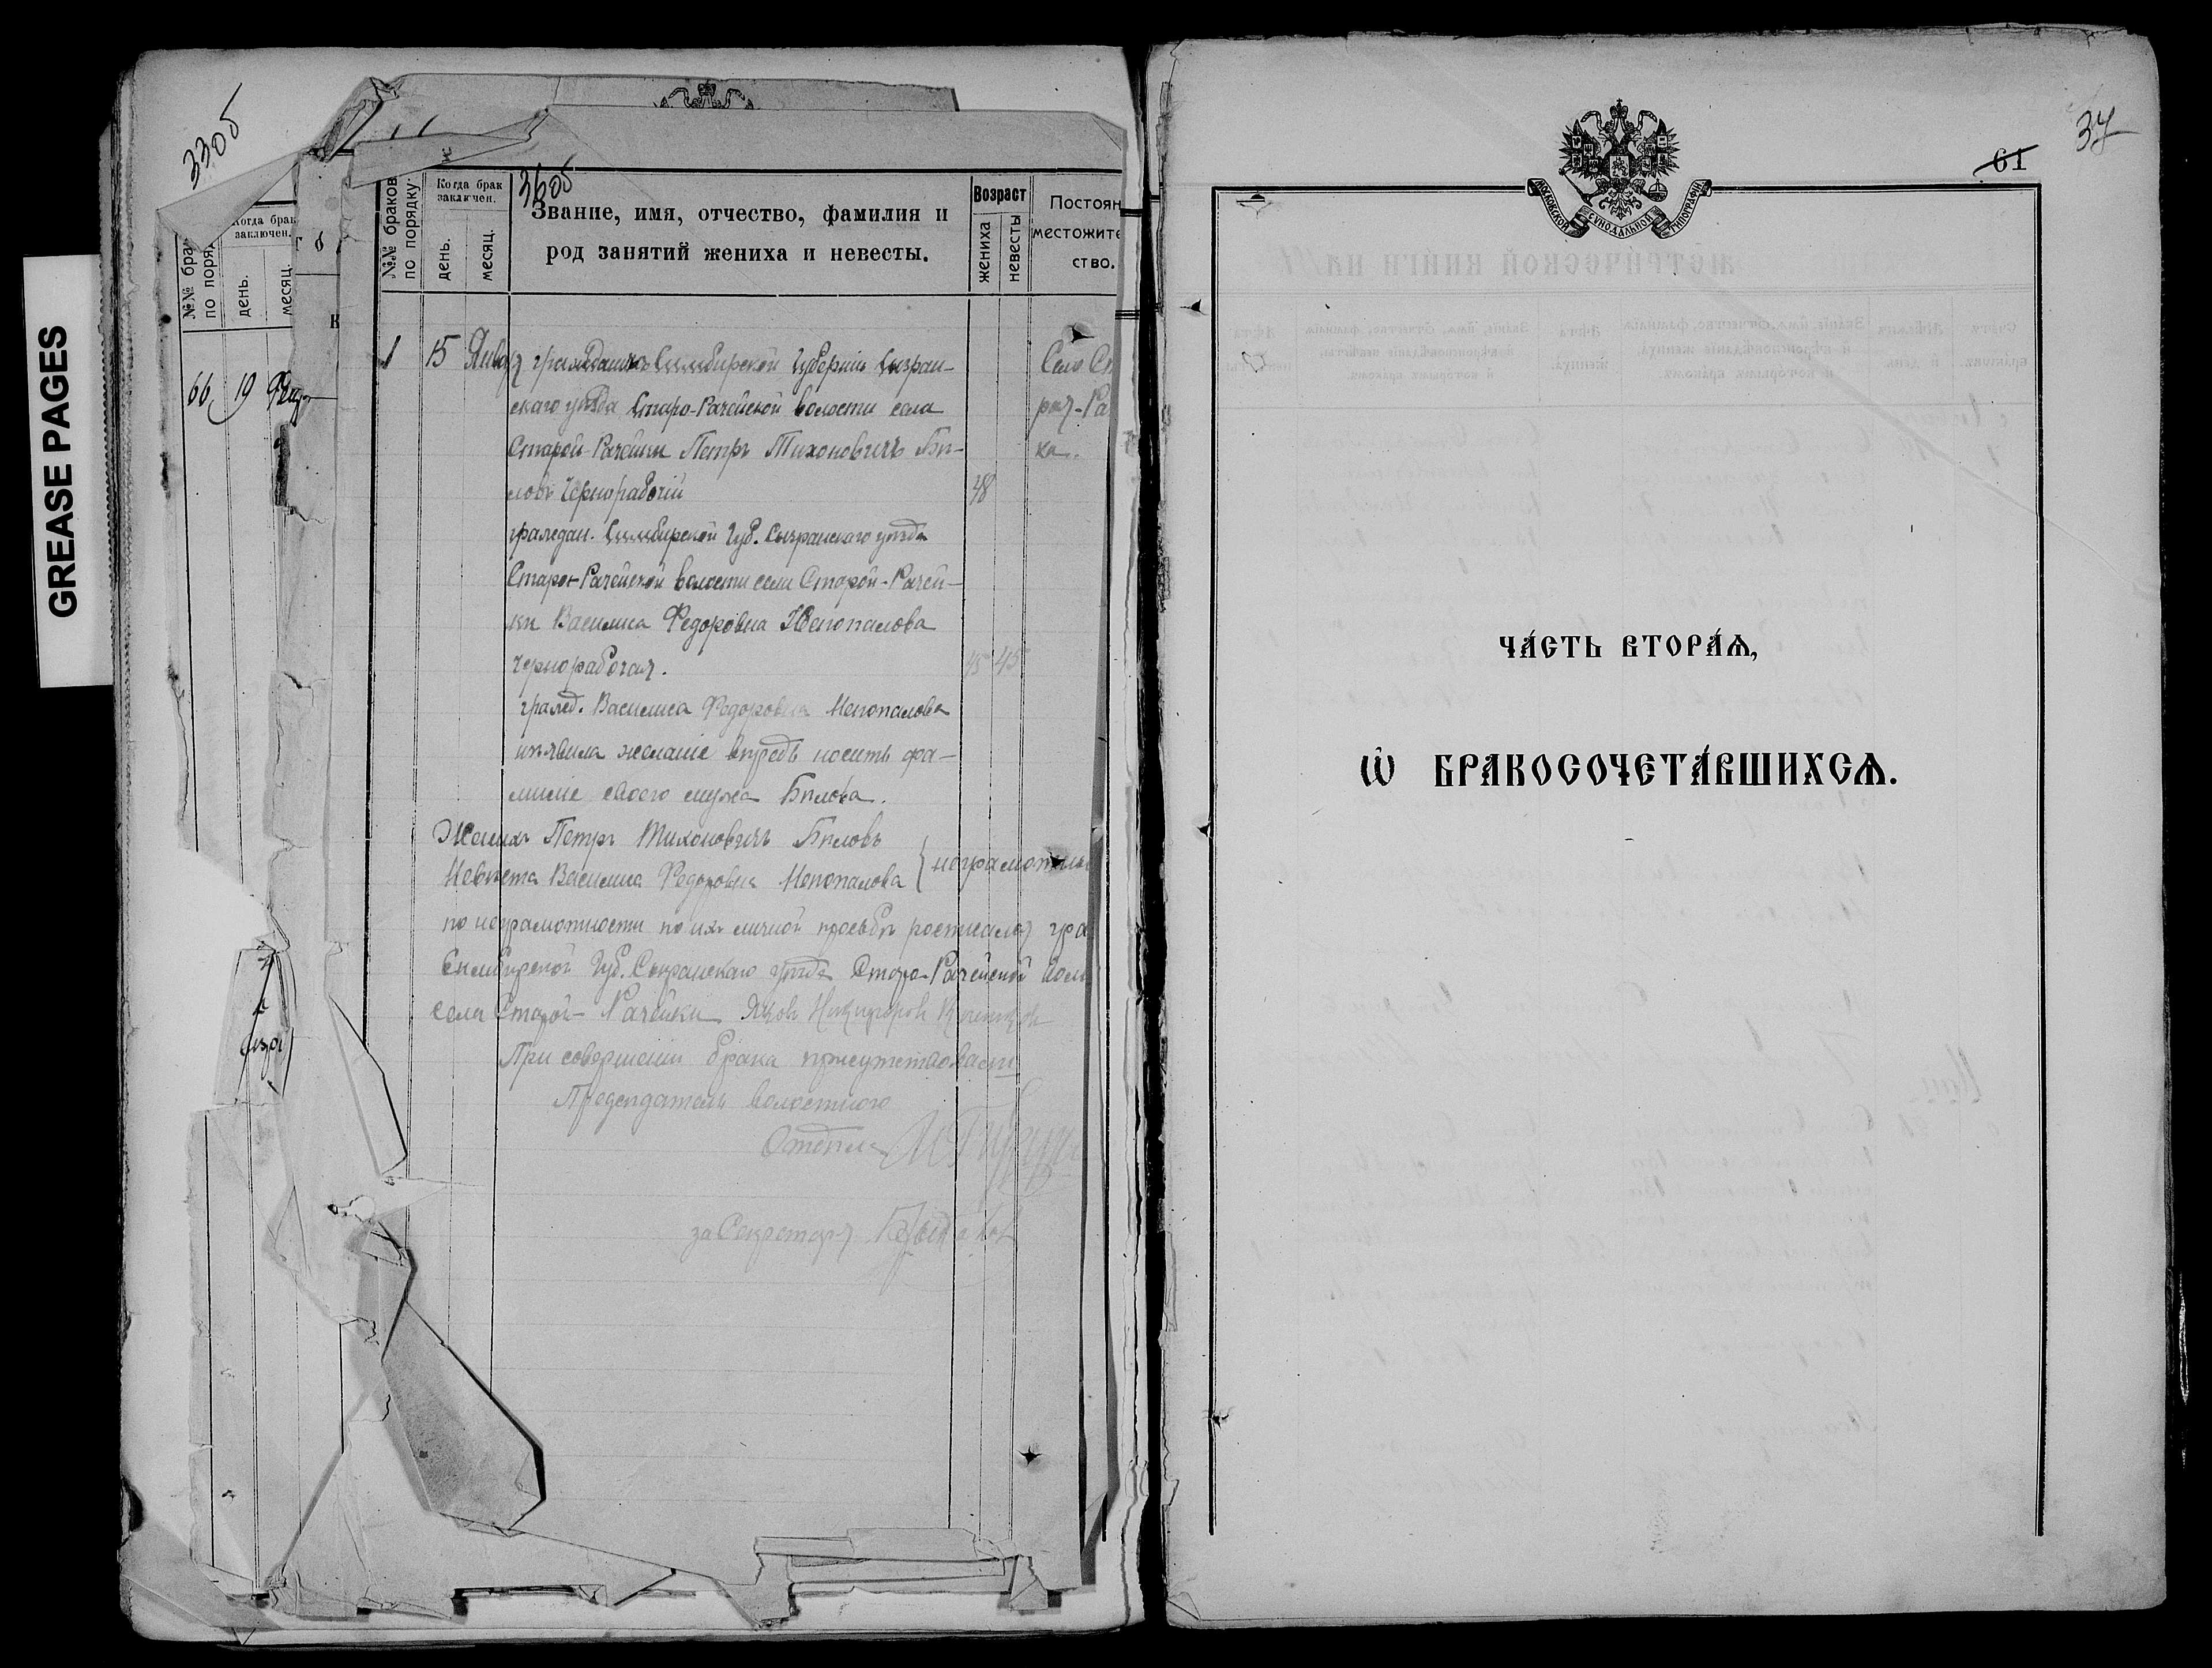 GREASE PAGES
33об
№№ брак
по поряд
Когда брак
заключен.
день.
месяц.
66
19
36об
№№ браков
по порядку.
Когда брак
заключен.
день.
месяц.
Звание, имя, отчество, фамилия и
род занятий жениха и невесты.
Возраст
жениха
невесты
Постоян
местожите
ство.
1 15 Январ гражданинъ Симбирской Губерніи Сызран- Село Ст
скаго уѣзда Старо-Рачейской волости села рая-Ра
Старой-Рачейки Петръ Тихоновичъ Бѣ- ка.
ловъ Чернорабочій 48
граждан. Симбирской Губ. Сызранскаго уѣзда
Старо-Рачейской волости села Старой-Рачей-
ки Василиса Федоровна Непопалова
Чернорабочая. 45 45
гражд. Василиса Федоровна Непопалова
изъявила желаніе впредь носить фа-
миліе своего мужа Бѣлова.
Женихъ Петръ Тихоновичъ Бѣловъ
Невѣста Василиса Федоровна Непопалова } неграмотны
по неграмотности по ихъ личной просьбѣ росписался гра
Симбирской Губ. Сызранскаго уѣзда Старо-Рачейской вол
села Старой-Рачейки Яковъ Никифоров
При совершеніи брака присутствовали
Предсѣдатель волостного
Отдѣла
за Секретаря
37
61
МОСКОВСКОЙ СѴНОДАЛЬНОЙ ТИПОГРАФІИ
ЧА́СТЬ ВТОРА́Ѧ,
Ѽ БРАКОСОЧЕТА́ВШИХСѦ.